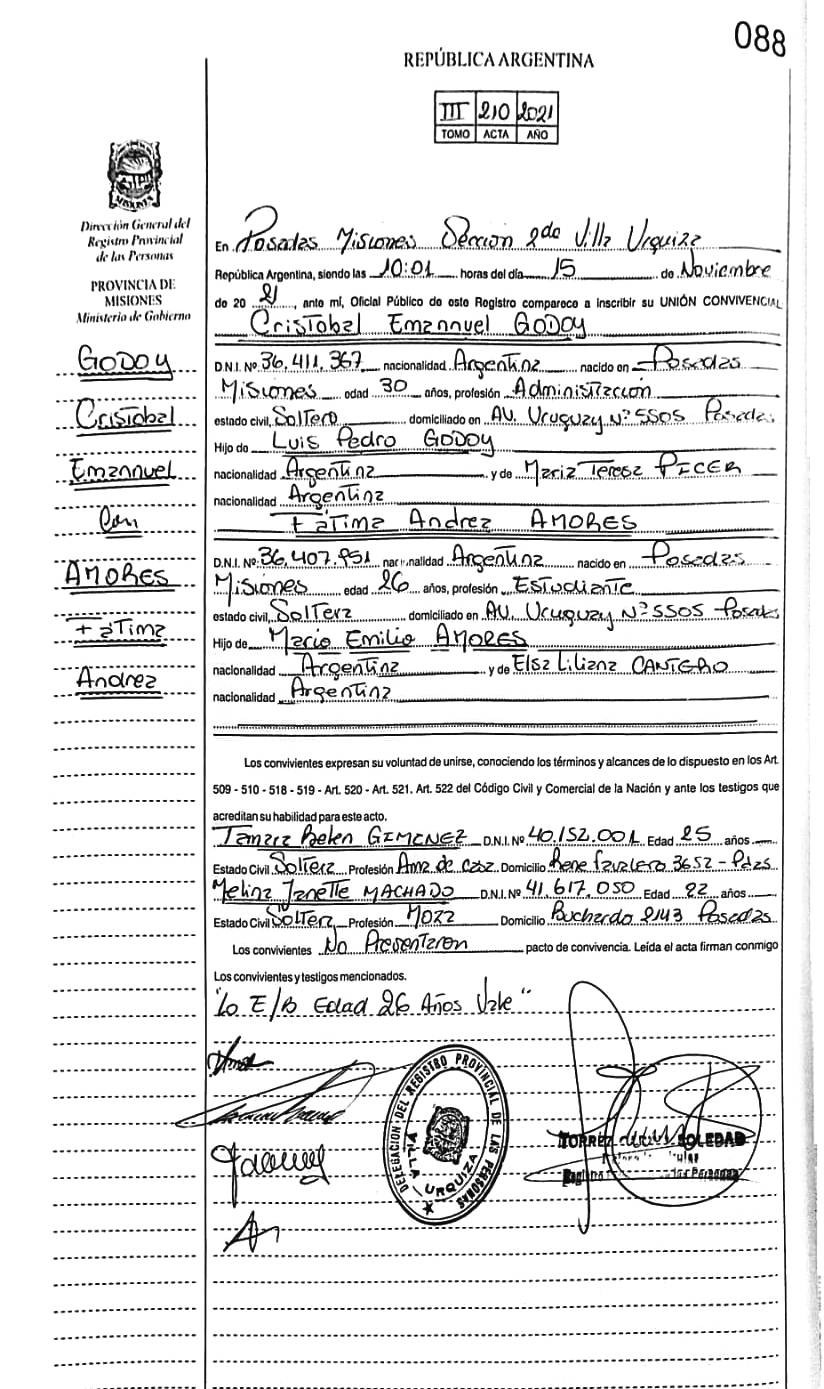 088
REPÚBLICA ARGENTINA
III 210 2021
TOMO ACTA AÑO
Dirección General del
Registro Provincial
de las Personas
PROVINCIA DE
MISIONES
Ministerio de Gobierno
GODOY
Cristobal
Emanuel
Con
AMORES
Fátima
Andrea
En Posadas Misiones Sección 2da Villa Urquiza
República Argentina, siendo las 10:01 horas del día 15 de Noviembre
de 20 21, ante mí, Oficial Público de este Registro comparece a inscribir su UNIÓN CONVIVENCIAL
Cristobal Emanuel GODOY
D.N.I. Nº 36.411.367 nacionalidad Argentina nacido en Posadas
Misiones edad 30 años, profesión Administracción
estado civil, Soltero domiciliado en AV. Uruguay Nº 5505 Posadas
Hijo de Luis Pedro GODOY
nacionalidad Argentina y de Maria Teresa PICER
nacionalidad Argentina
Fátima Andrea AMORES
D.N.I. Nº 36.407.951 nacionalidad Argentina nacido en Posadas
Misiones edad 26 años, profesión Estudiante
estado civil, Soltera domiciliado en AV. Uruguay Nº 5505 Posadas
Hijo de Mario Emilio AMORES
nacionalidad Argentina y de Elsa Liliana CANTERO
nacionalidad Argentina
Los convivientes expresan su voluntad de unirse, conociendo los términos y alcances de lo dispuesto en los Art.
509 - 510 - 518 - 519 - Art. 520 - Art. 521. Art. 522 del Código Civil y Comercial de la Nación y ante los testigos que
acreditan su habilidad para este acto.
Tamara Belen GIMENEZ D.N.I. Nº 40.152.001 Edad 25 años
Estado Civil Soltera Profesión Ama de casa Domicilio Rene Favalero 3652 - Pdas
Melina Janette MACHADO D.N.I. Nº 41.617.050 Edad 22 años
Estado Civil Soltera Profesión Domicilio Buchardo 2143 Posadas
Los convivientes No Presentaron pacto de convivencia. Leída el acta firman conmigo
Los convivientes y testigos mencionados.
"Lo E/B Edad 26 Años Vale"
DELEGACION DEL REGISTRO PROVINCIAL DE LAS PERSONAS
VILLA URQUIZA
TORREZ SOLEDAD